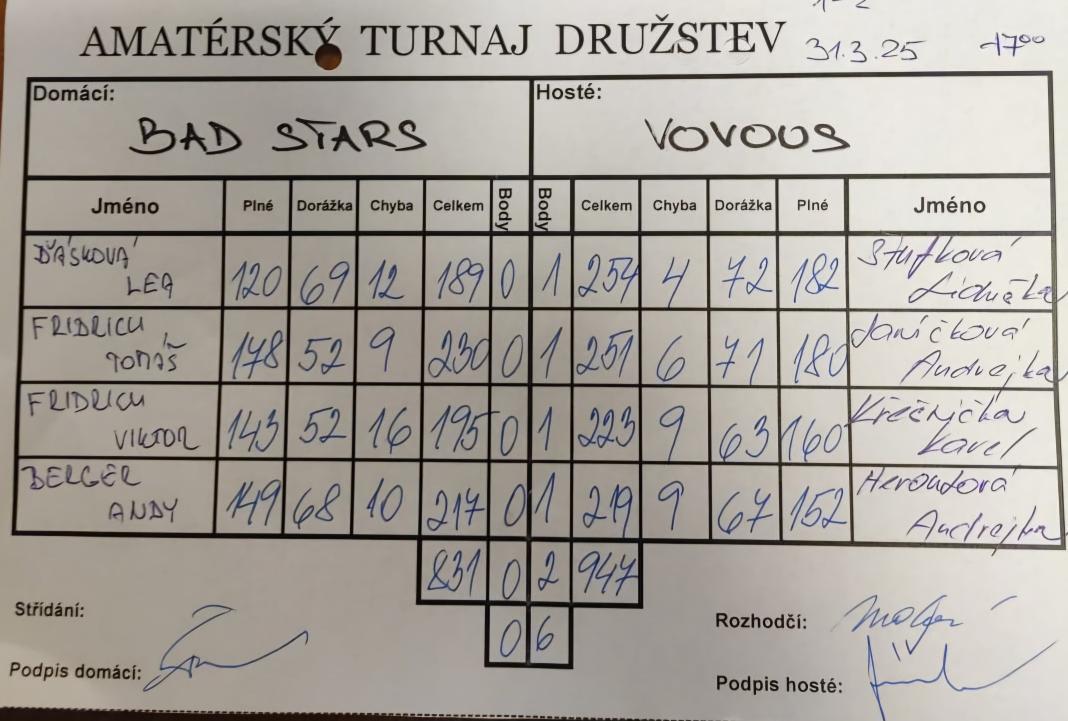 AMATÉRSKÝ TURNAJ DRUŽSTEV
31.3.25 17⁰⁰
Domácí: Hosté:
BAD STARS VOVOUS
Jméno Plné Dorážka Chyba Celkem Body Body Celkem Chyba Dorážka Plné Jméno
LEA 120 69 12 189 0 1 254 4 72 182
FRIDRICH Janíčková
TOMÁŠ 178 52 9 230 0 1 251 6 71 180 Andrejka
FRIDRICH
VIKTOR 143 52 16 195 0 1 223 9 63 160 Karel
BERGER Heroutová
ANDY 149 68 10 217 0 1 219 9 67 152 Andrejka
831 0 2 947
0 6
Střídání: Rozhodčí:
Podpis domácí: Podpis hosté: